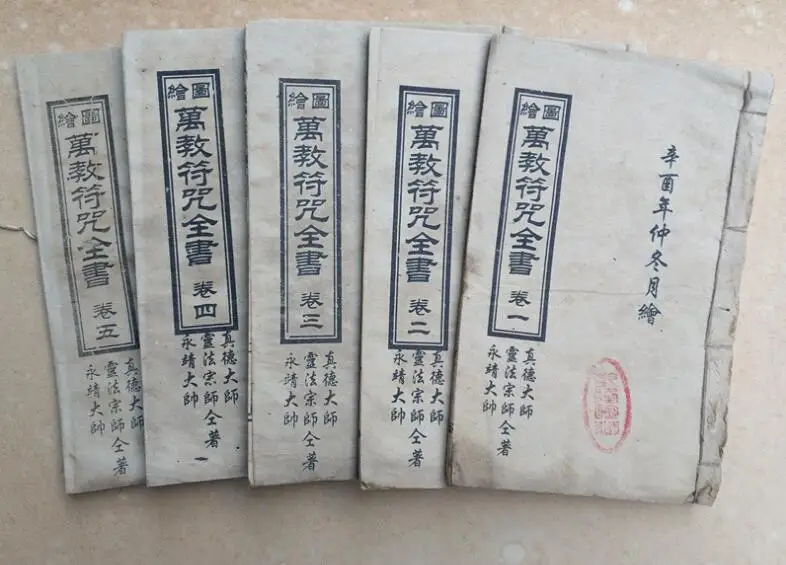 辛酉年仲冬月繪
圖繪
萬教符咒全書 卷一
真德大師
靈法宗師 仝著
永靖大帥
圖繪
萬教符咒全書 卷二
真德大師
靈法宗師 仝著
永靖大帥
圖繪
萬教符咒全書 卷三
真德大師
靈法宗師 仝著
永靖大帥
圖繪
萬教符咒全書 卷四
真德大師
靈法宗師 仝著
永靖大帥
圖繪
萬教符咒全書 卷五
真德大師
靈法宗師 仝著
永靖大帥